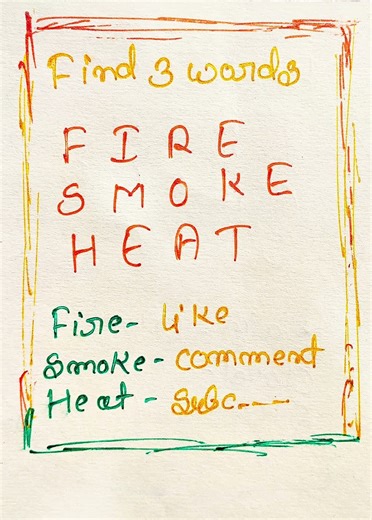 Find 3 words
FIRE
SMOKE
HEAT
Fire- Like
Smoke- comment
Heat - Subc---